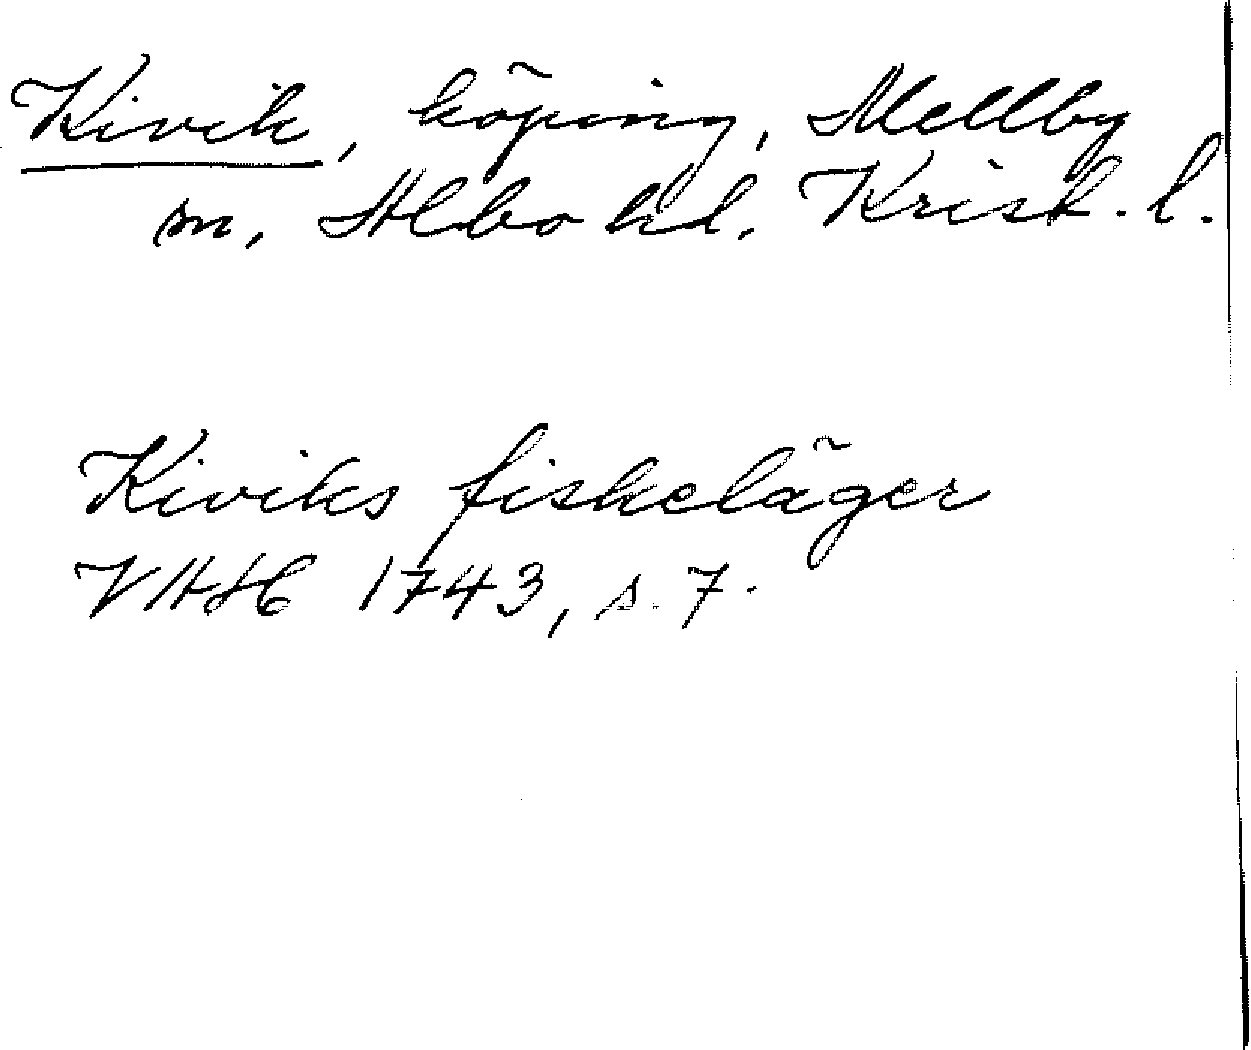 Kivik, köping, Mellby
sn, Albo hd. Krist. l.
Kiviks fiskeläger
VAH 1743, s. 7.